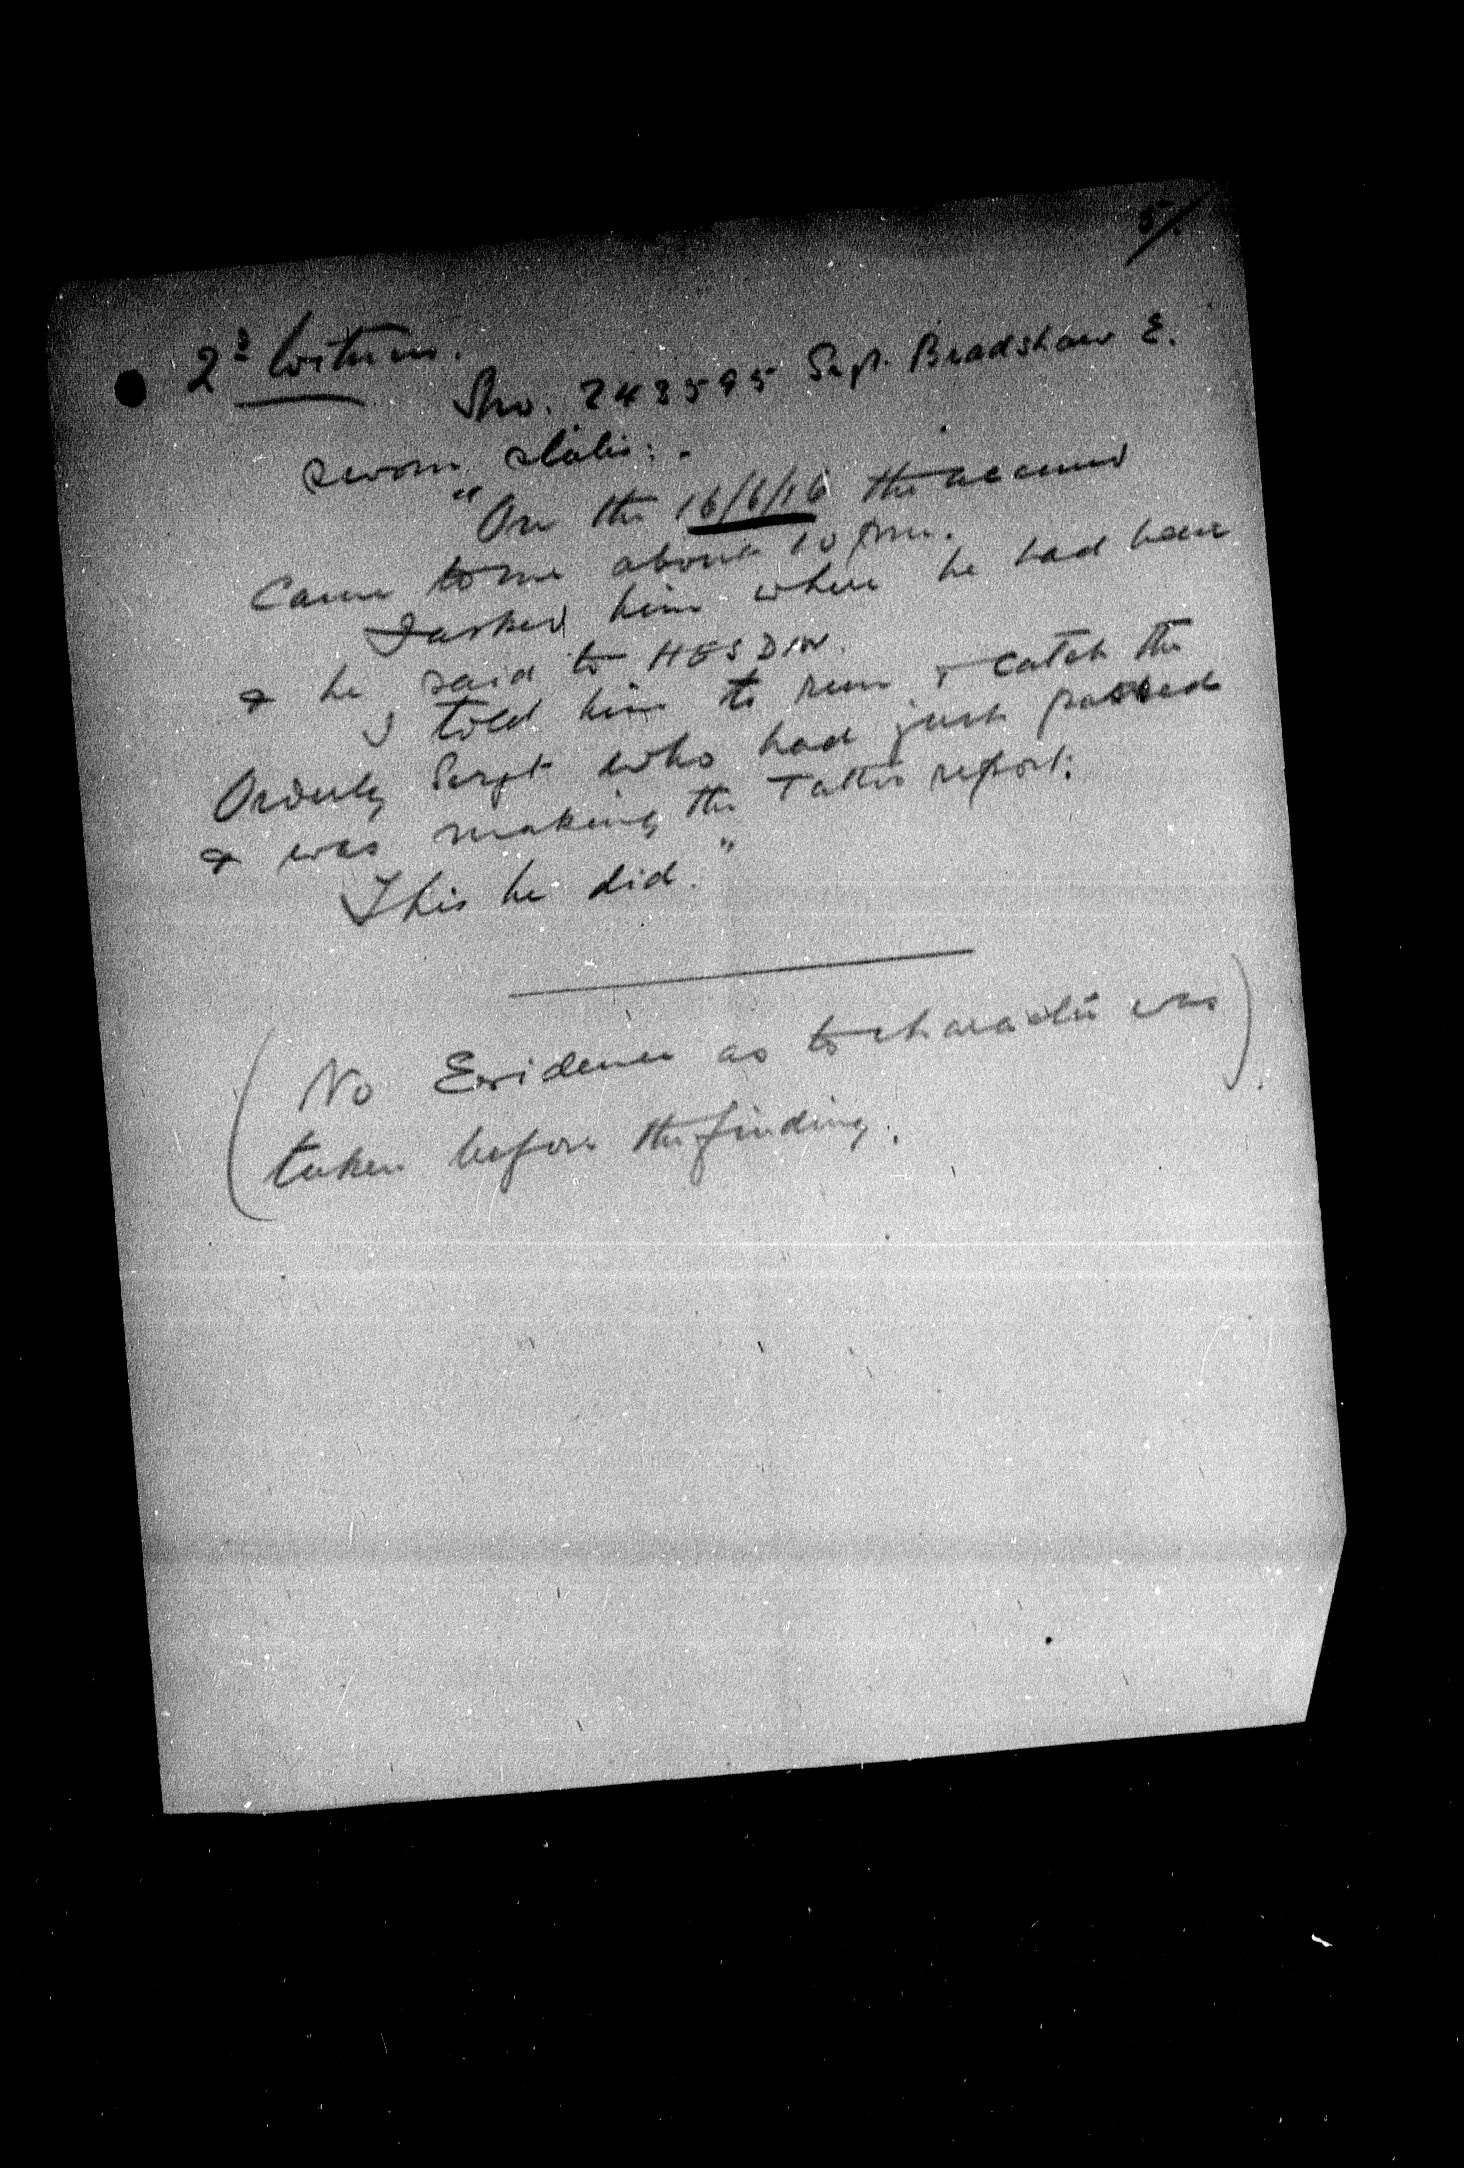 5/.
2d Witness.
No. 243595 Sergt. Bradshaw E.
sworn states: -
"On the 16/6/16 the accused
came to me about 10 pm.
I asked him where he had been
& he said to HESDIN.
I told him to run & catch the
Orderly Sergt who had just passed
& was making the Tattoo report.
This he did."
(No Evidence as to character was
taken before the finding.)